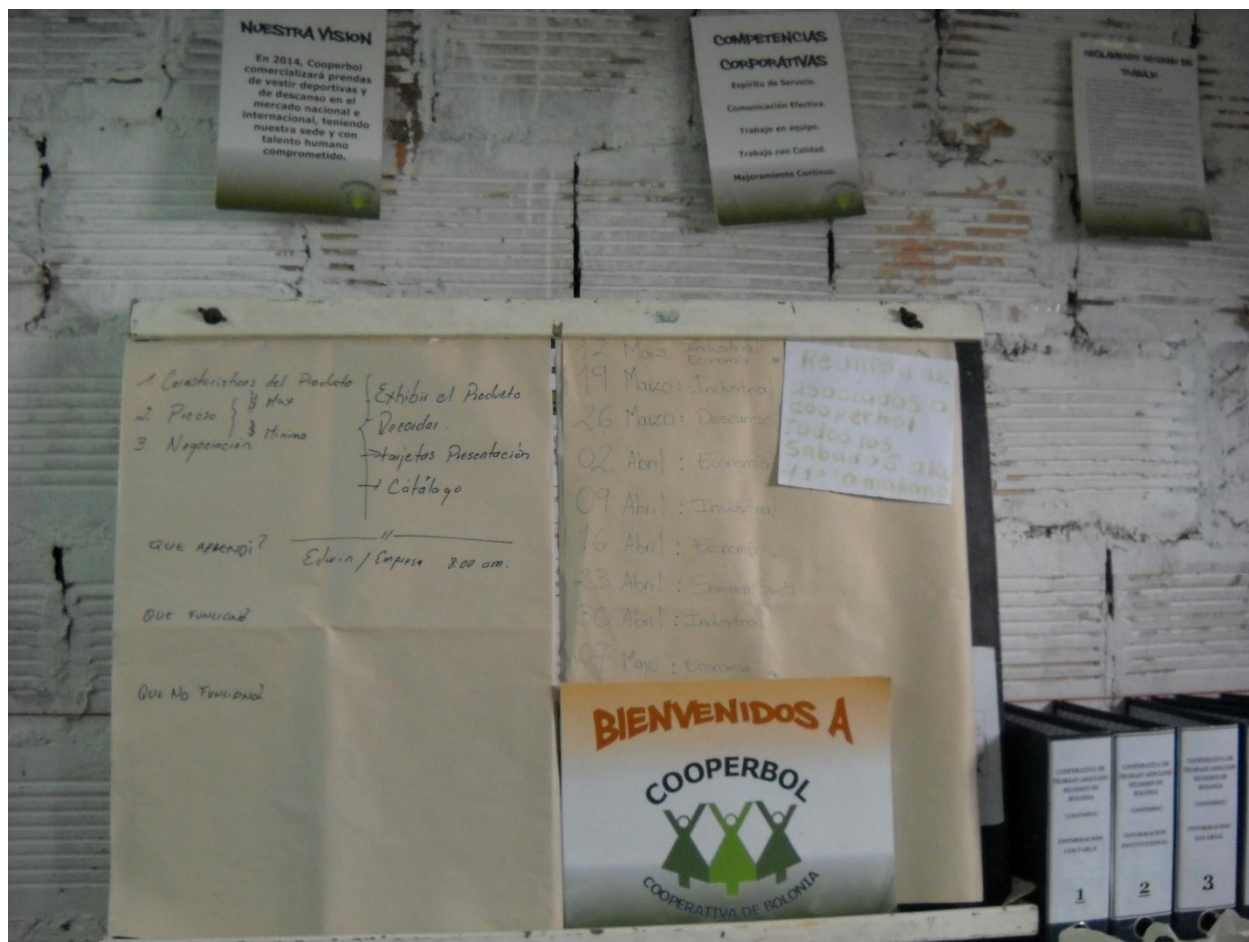 NUESTRA VISION
En 2014, Cooperbol
comercializará prendas
de vestir deportivas y
de descanso en el
mercado nacional e
internacional, teniendo
nuestra sede y con
talento humano
comprometido.
COMPETENCIAS
CORPORATIVAS
Espíritu de Servicio.
Comunicación Efectiva.
Trabajo en equipo.
Trabajo con Calidad.
Mejoramiento Continuo.
REGLAMENTO INTERNO DE
TRABAJO
1. Caracteristicas del Producto
2. Precio
Max
Minimo
3. Negociación
Exhibir el Producto
Recordar.
Tarjetas Presentación
Catálogo
QUE APRENDí?
Edwin / Empresa 8:00 am.
QUE FUNCIONÓ
QUE NO FUNCIONÓ?
12 Marzo Industrial
Economía
19 Marzo: Industrial
26 Marzo: Descanso
02 Abril : Economía
09 Abril : Industrial
16 Abril : Economía
23 Abril : Semana Santa
30 Abril : Industrial
07 Mayo : Economía
Reunion de
asociados a
cooperbol
todos los
Sabados a la
BIENVENIDOS A
COOPERBOL
COOPERATIVA DE BOLONIA
COOPERATIVA DE
TRABAJO ASOCIADO
BOLONIA
INFORMACION
CONTABLE
1
COOPERATIVA DE
TRABAJO ASOCIADO
BOLONIA
INFORMACION
INSTITUCIONAL
2
COOPERATIVA DE
TRABAJO ASOCIADO
BOLONIA
INFORMACION
SALARIAL
3